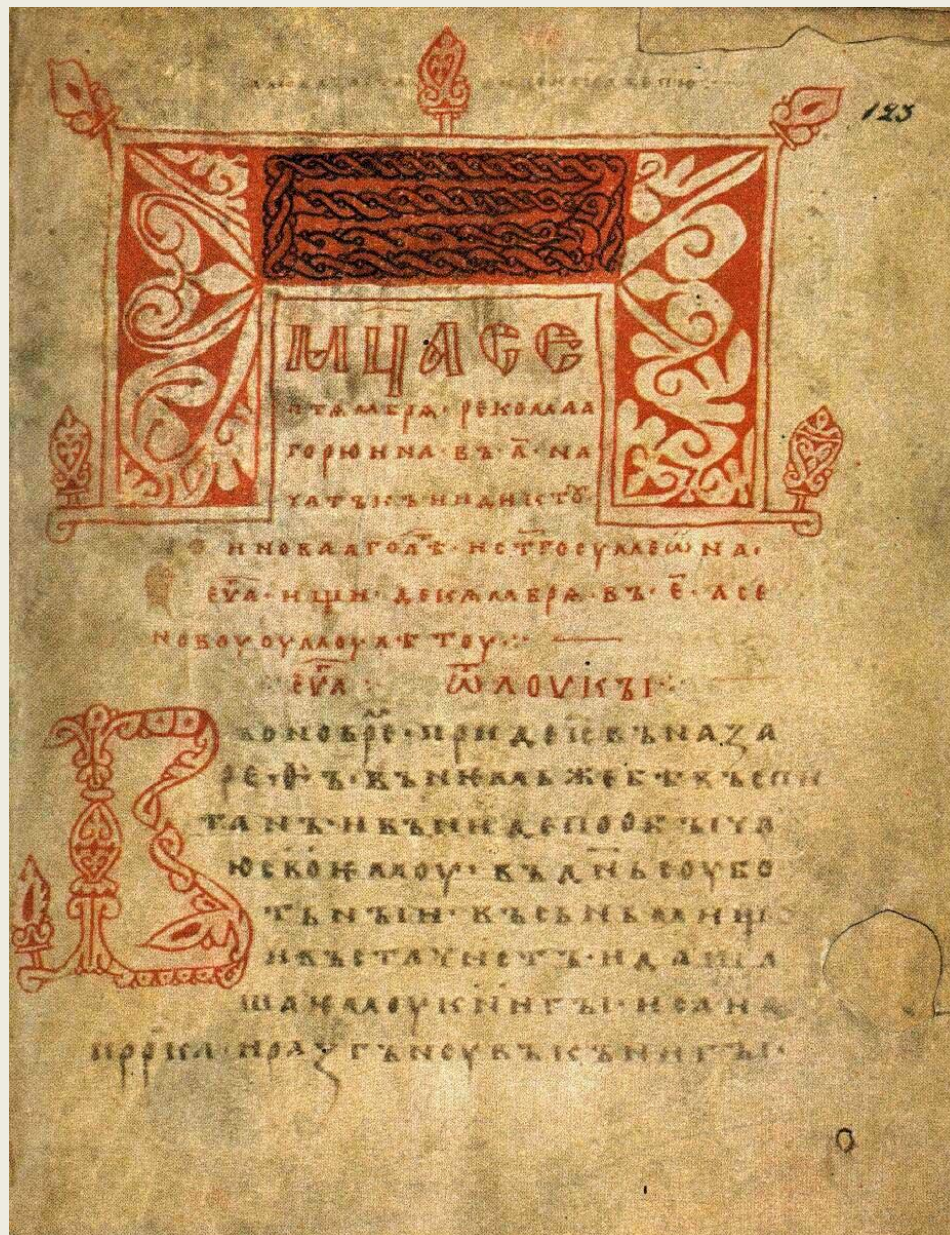 123
МЦА СЕ
ПТѦМБРѦ · РЕКОМАА
ГОРЮИНА · ВЪ · А҃ · НА
ЧАТЪКЪ ИНДИКТОУ
И НОВААГО ЛѢ · И СТ҃ГО СУМЕѾНА ·
ЕУ҃А · ИЩИ · ДЕКѦМБРѦ · ВЪ · Е҃ · А СЕ
НОВОУОУМОУ ЛѢТОУ ·:
ЕУ҃А : Ѿ ЛОУКЪІ ·:
В
ПРИДЕ І҃С ВЪ НАЗА
РЕѲЪ · ВЪ НЕМЬЖЕ БѢ ВЪСПИ
ТАНЪ · И ВЪНИДЕ ПО ОБЪІЧА
Ю СВОЕМОУ · ВЪ ДН҃Ь СОУБО
ТЬНЪІИ · ВЪ СЬНЬМИЩЕ
И ВЪСТА ЧИСТЪ · И ДАША
ШѦ ЕМОУ КНИГЪІ · ИСАИѦ
ПРР҃КА · И РАЗГЪНОУВЪ КЪНИГЪІ ·